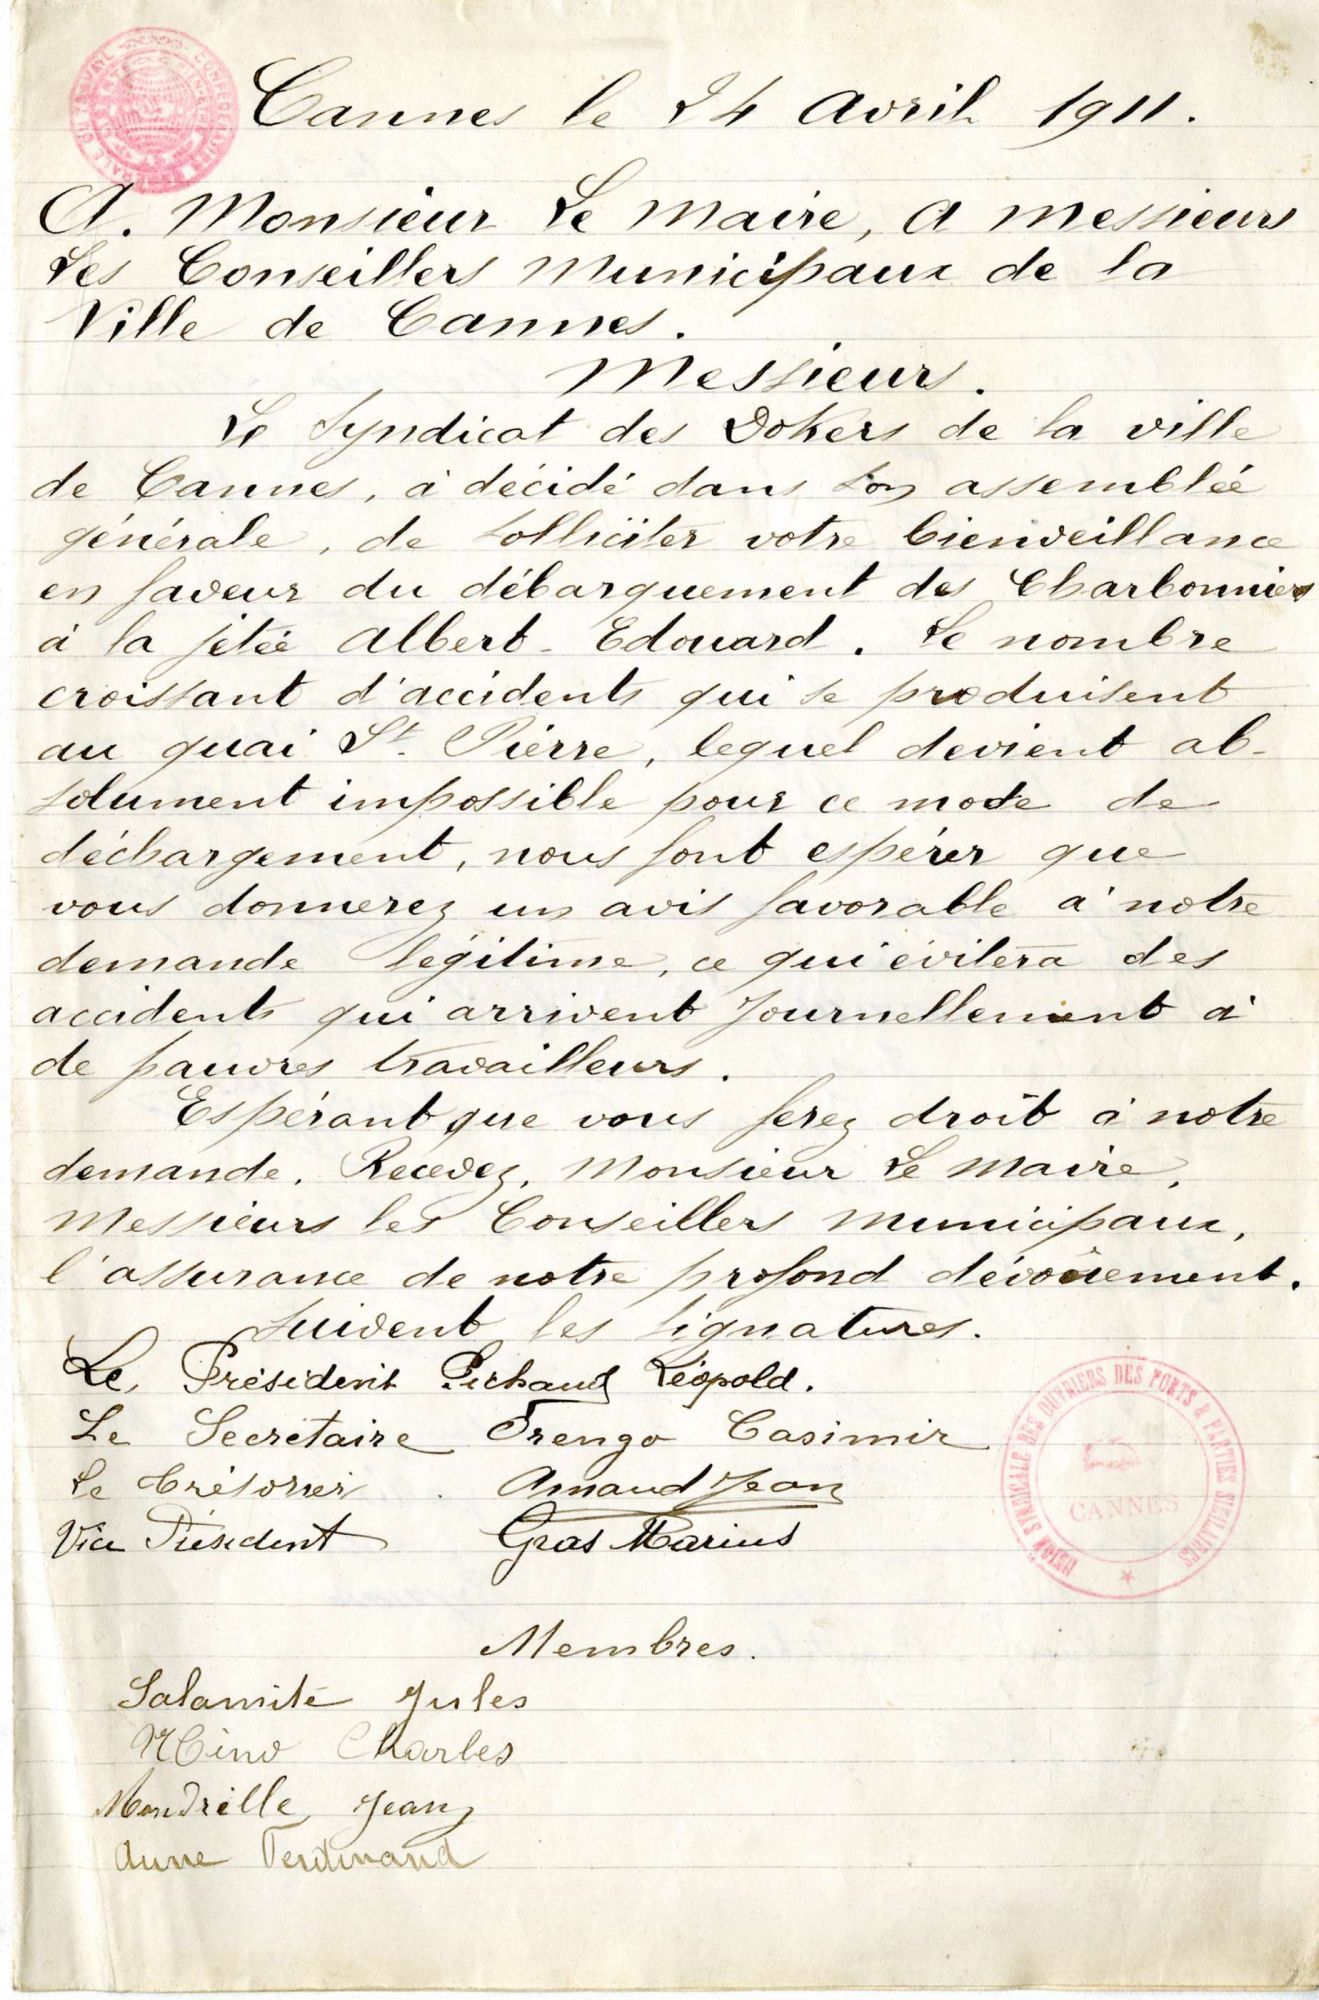 CONFEDERATION GENERALE DU TRAVAIL
Cannes le 24 Avril 1911.
A. Monsieur Le Maire, A Messieurs
Les Conseillers Municipaux de la
Ville de Cannes.
Messieurs.
Le Syndicat des Dokers de la ville
de Cannes, à décidé dans son assemblée
générale, de solliciter votre bienveillance
en faveur du débarquement des Charbonniers
à la jetée Albert-Edouard. Le nombre
croissant d'accidents qui se produisent
au quai St. Pierre, lequel devient ab-
solument impossible pour ce mode de
déchargement, nous font espérer que
vous donnerez un avis favorable à notre
demande légitime, ce qui évitera des
accidents qui arrivent Journellement à
de pauvres travailleurs.
Espérant que vous ferez droit à notre
demande. Recevez, Monsieur Le Maire,
Messieurs les Conseillers Municipaux,
l'assurance de notre profond dévouement.
Suivent les signatures.
Le Président Pichaud Léopold.
Le Secrétaire Trengo Casimir
Le Trésorier. Arnaud Jean
Vice Président Gras Marius
UNION SYNDICALE DES OUVRIERS DES PORTS & PARTIES SIMILAIRES
CANNES
Membres.
Salamité Jules
Charles
Mondrille Jean
Aune Ferdinand